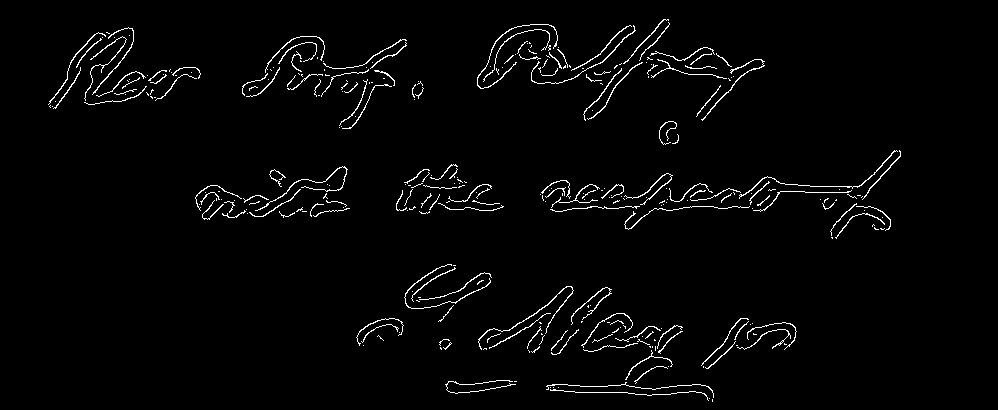 Rev Prof. Palfrey
with the respects of